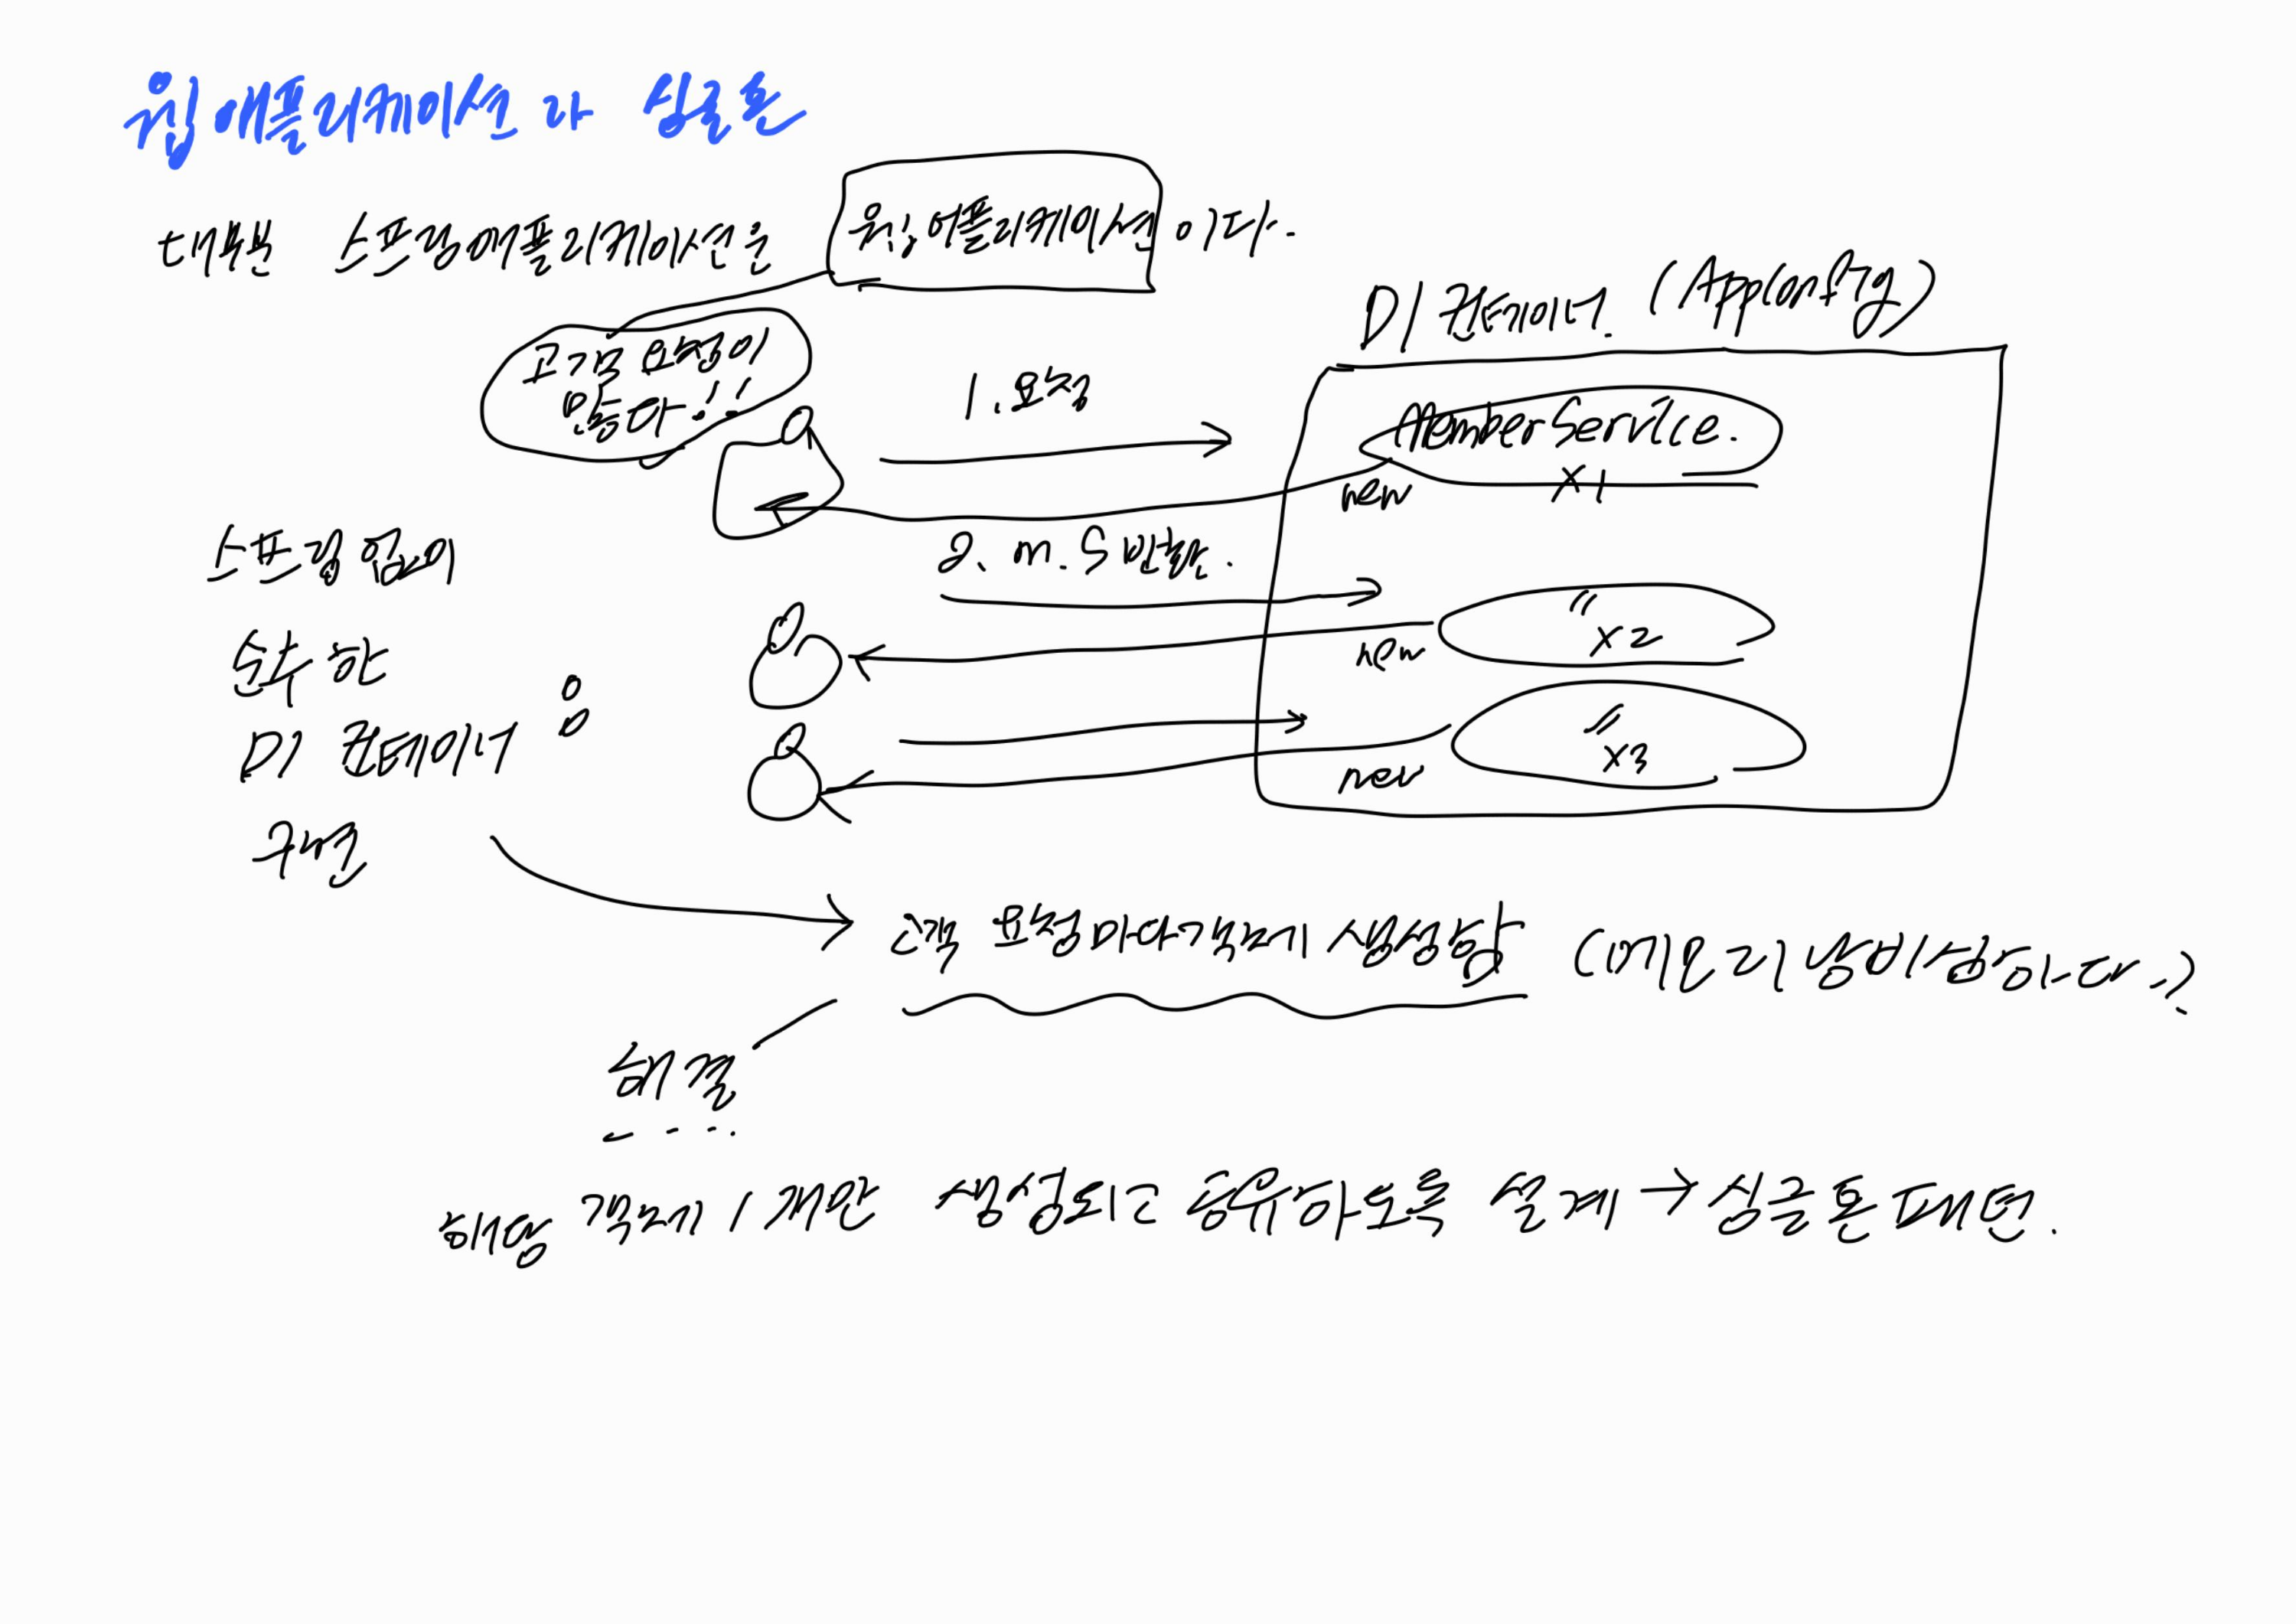 웹 애플리케이션과 싱글톤
대부분 스프링 애플리케이션은 웹 애플리케이션 이다.
DI 컨테이너 (AppConfig)
고객 요청이
많다!!
1. 요청
MemberService.
x1
new
2. m.s 반환.
스프링 없이
순수한
DI 컨테이너 :
구현
〃
x2
new
〃
x3
new
고객 요청마다 객체 생성함 (메모리 낭비 심하다.)
해결
해당 객체 1개만 생성되고 공유하도록 설계 → 싱글톤 패턴.